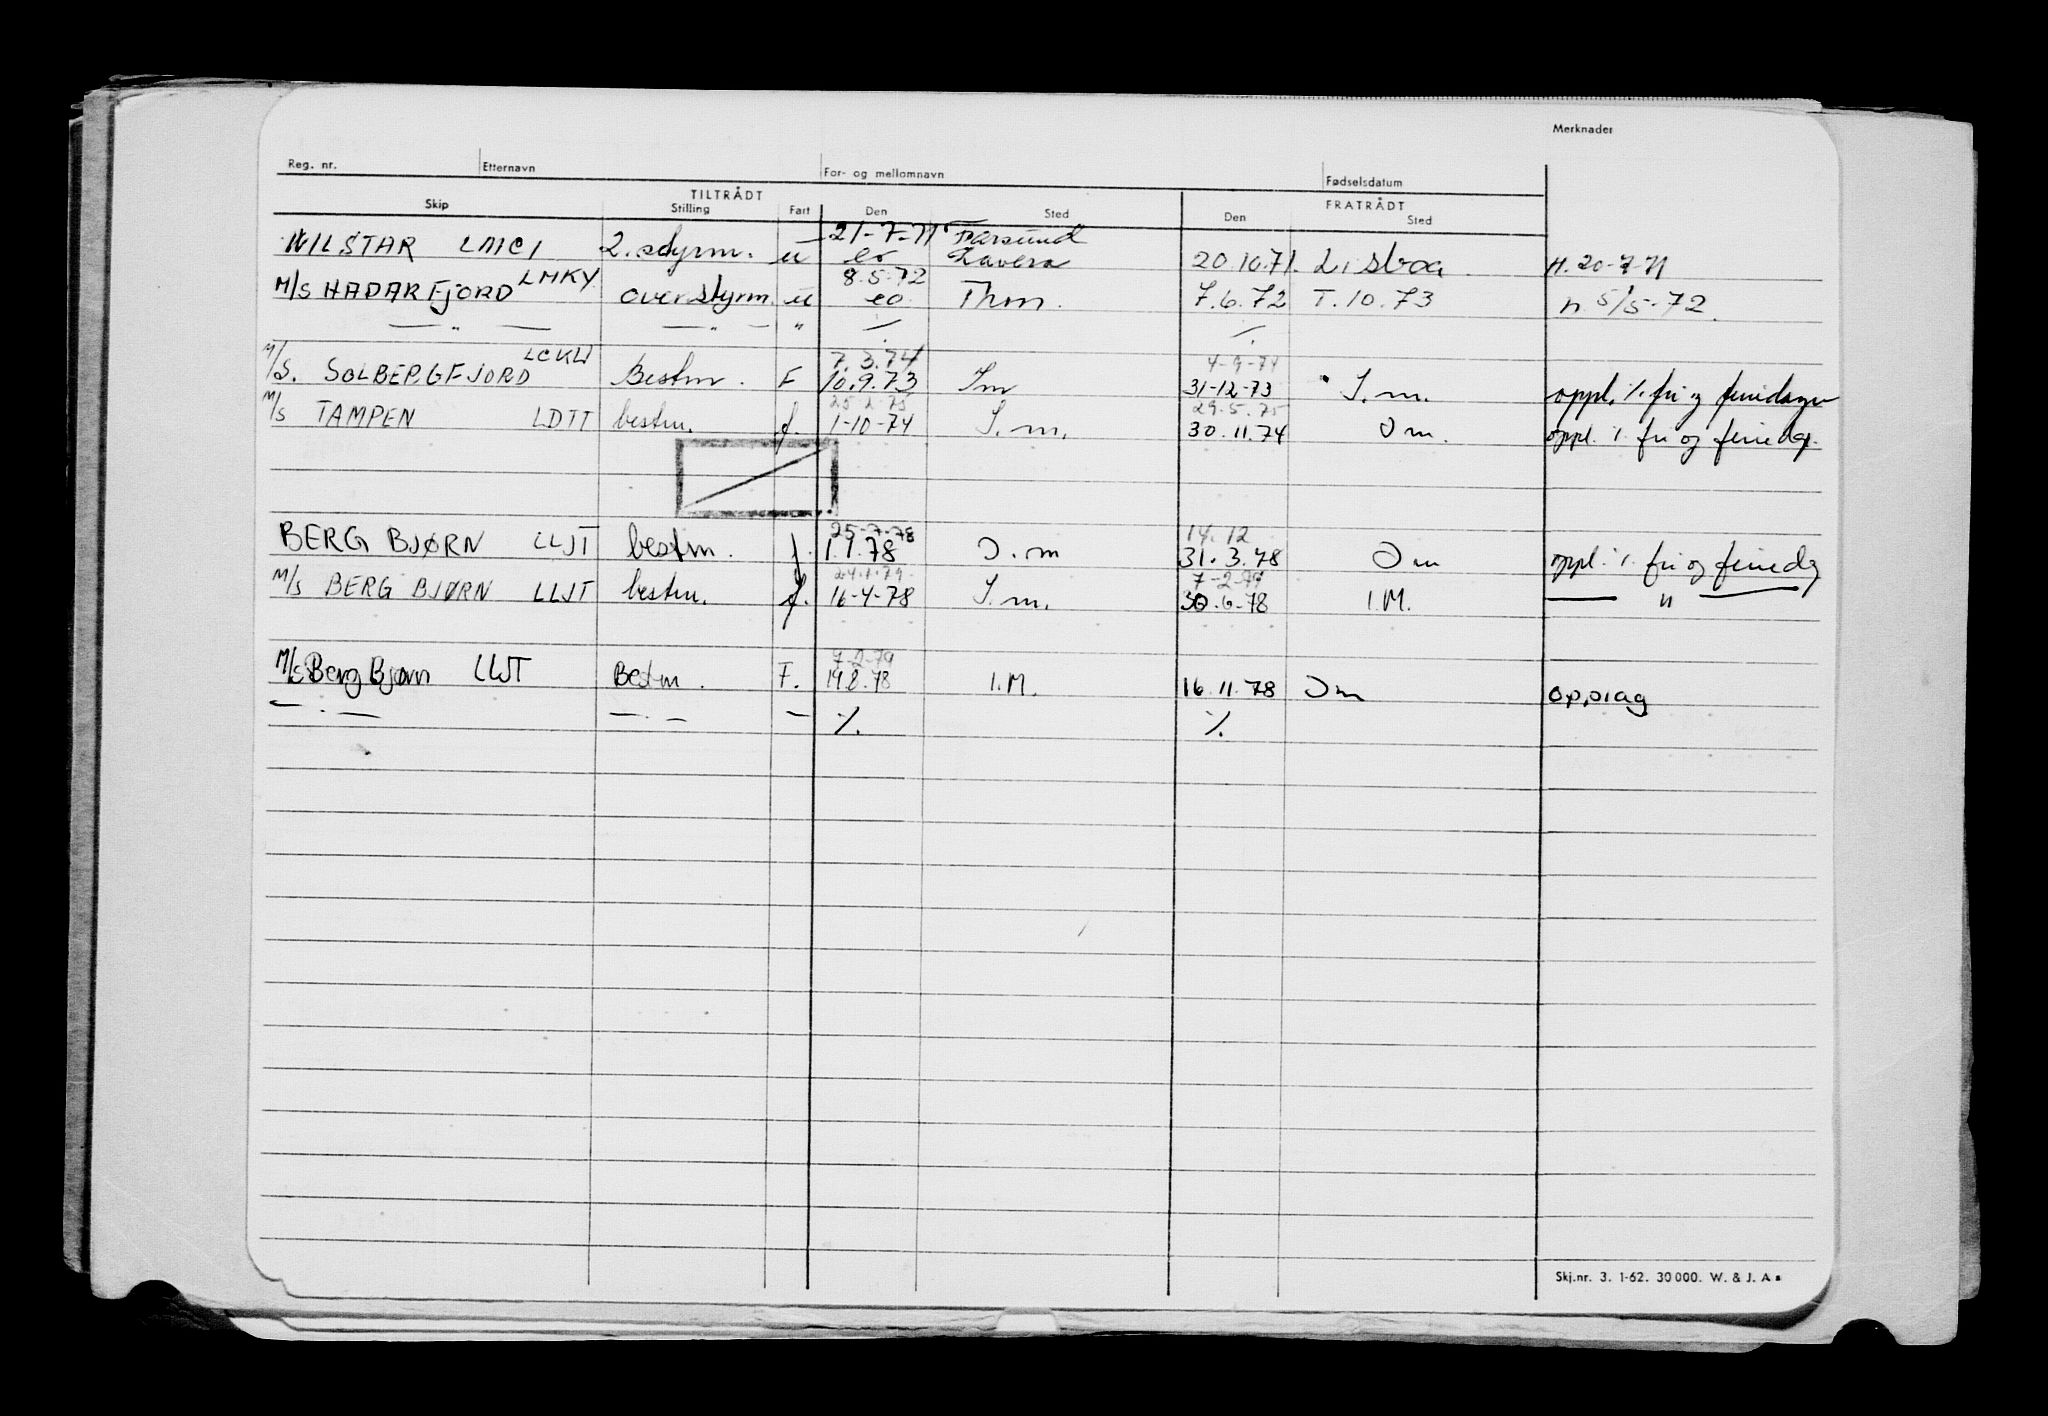 Merknader
Reg. nr. Etternavn For- og mellomnavn Fødselsdatum
TILTRÅDT FRATRÅDT
Skip Stilling Fart Den Sted Den Sted
21-7-71 Farsund
WILSTAR LMCI 2. styrm. u Lavera 20.10.71. Lisboa H. 20-7-71
M/S HADARFJORD LMKY overstyrm. u 8.5.72 eo Thm. 7.6.72 T.10.73 n. 5/5-72.
— " — — " — " ./. ./.
7.3.74 4-9-74
M/S. SOLBERGFJORD LCKW Bestm. F 10.9.73 I m 31-12-73 I.m. oppl. ⁒ fri og feriedager
25-2-75 29.5.75
M/S TAMPEN LDTT bestm. f. 1-10-74 I.m. 30.11.74 I m. oppl. ⁒ fri og feriedg.
25-7-78 14.12
BERG BJØRN LLJT bestm. f. 1.1.78 I.m 31.3.78 I m oppl. ⁒ fri og feriedg
24.1.79. 7-2-79
M/S BERG BJØRN LLJT bestm. f. 16-4-78 I.m. 30.6.78 I.M. — " —
7-2-79
M/S Berg Bjørn LLJT Bestm. F. 19.8.78 I.M. 16.11.78 I m
— . — — . — — ⁒. ⁒.
Skj.nr. 3. 1-62. 30 000. W. & J. A s